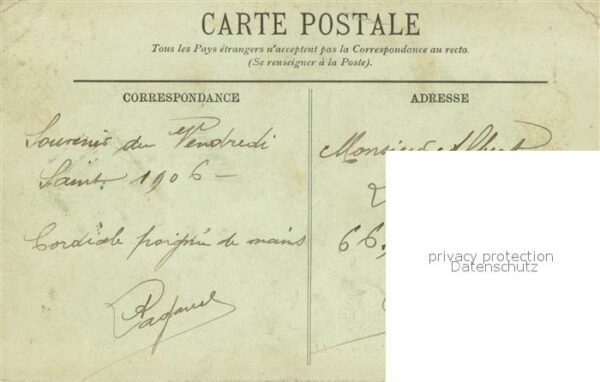 CARTE POSTALE
Tous les Pays étrangers n'acceptent pas la Correspondance au recto.
(Se renseigner à la Poste).
CORRESPONDANCE
Souvenir du Vendredi
Saint 1906 -
Cordiale poignée de mains
ADRESSE
Monsieur Albert
66,
privacy protection
Datenschutz